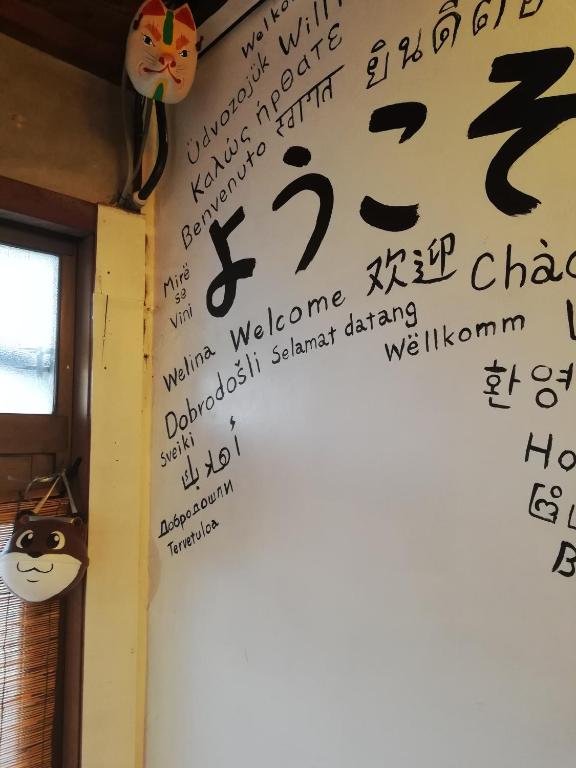 Welko
Will
Üdvozojük
Καλώς ήρθατε
ยินดีต้อ
Benvenuto
स्वागत
ようこそ
Mirë
se
Vini
Welina
Welcome
欢迎
Chào
Dobrodošli
Selamat datang
Wëllkomm
환영
Sveiki
أهلا بك
Добродошли
Tervetuloa
Ho
B